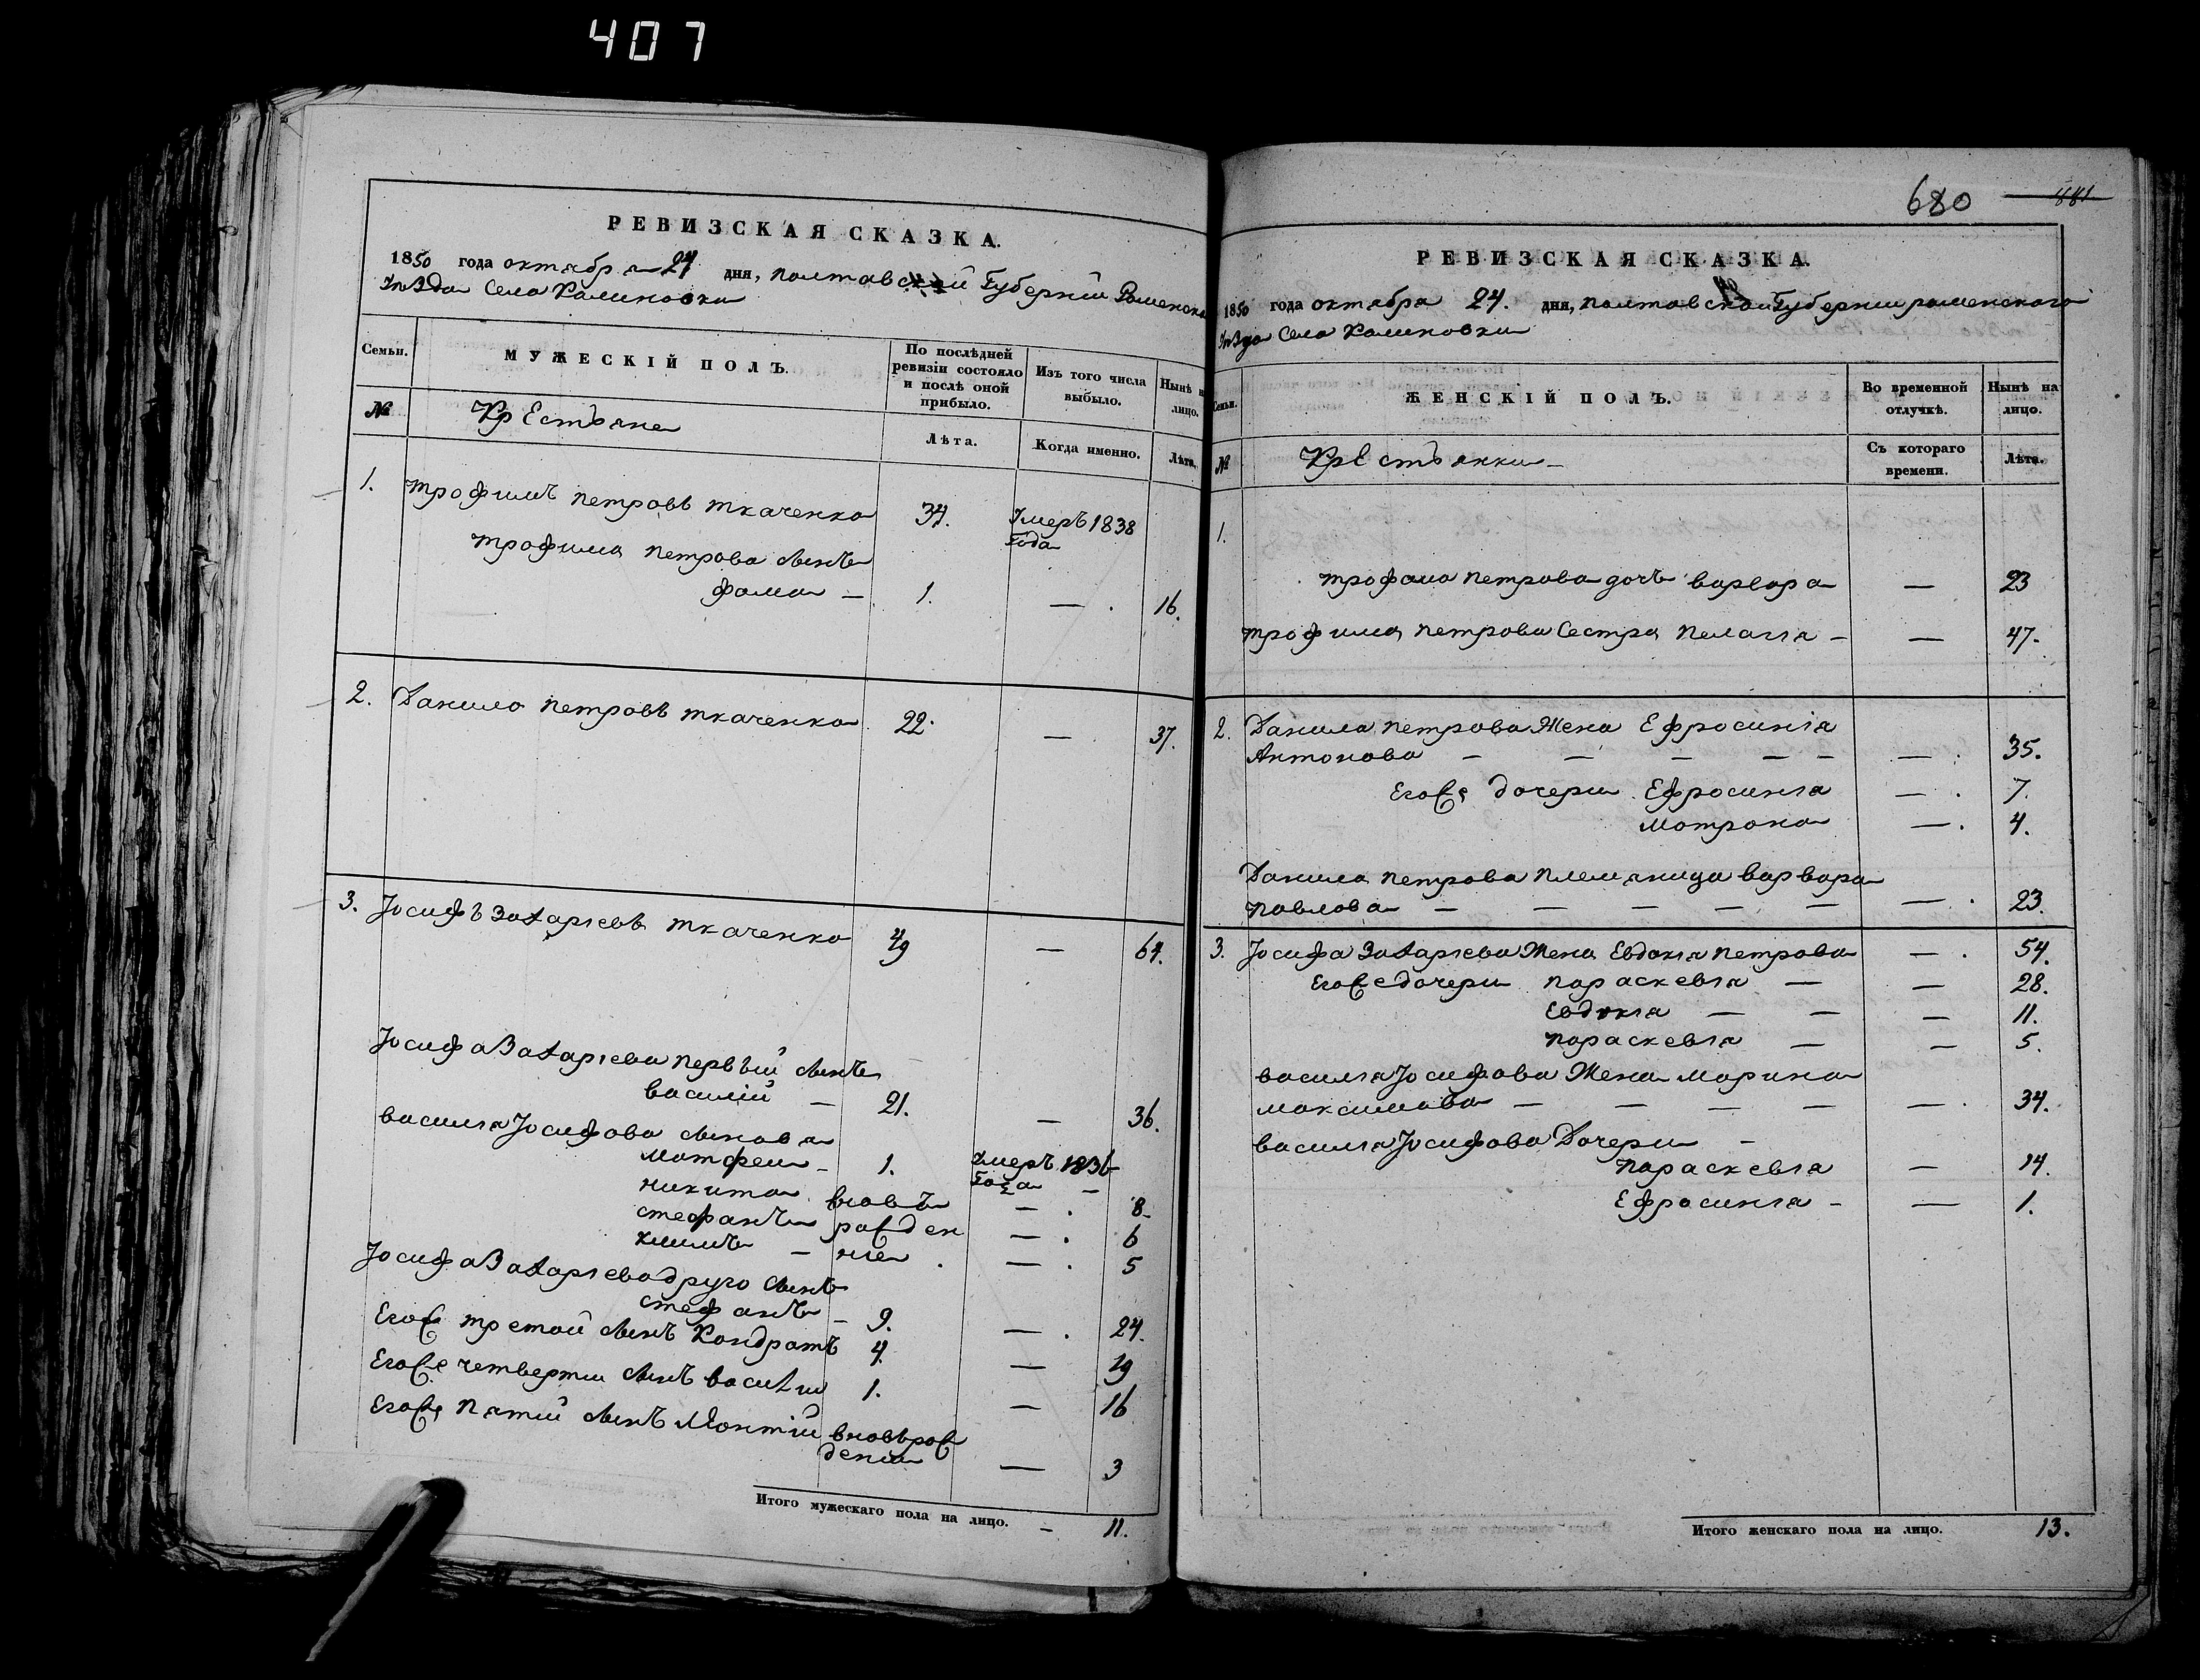 407
РЕВИЗСКАЯ СКАЗКА.
1850 года октября 24 дня, полтавской Губерній Роменска
Уѣзда Села Калиновки
Семьи.
МУЖЕСКІЙ ПОЛЪ.
По послѣдней ревизіи состояло и послѣ оной прибыло.
Изъ того числа выбыло.
Нынѣ н лицо.
№
КрЕстьяне
Лѣта.
Когда именно.
Лѣта.
1. трофимъ петровъ ткаченко 34. Умеръ 1838 года
трофима петрова сынъ
фома — 1. — 16.
2. Данило петровъ ткаченко 22. — 37.
3. Іосифъ Захаріевъ ткаченко 49 — 64.
Іосифа Захаріева первый сынъ
василій — 21. — 36.
василія Іосифова сыновя
матфей — 1. Умеръ 1836 года —
никита вновь — 8
стефанъ рожден — 6
климъ — ніе — 5
Іосифа Захаріева друго сынъ
стефанъ — 9. — 24.
Егоже третой сынъ Кондратъ 4. — 19
Егоже четверти сынъ васили 1. — 16
Егоже пятий сынъ Монтій вновърож
дении — 3
Итого мужескаго пола на лицо. — 11.
680 881
РЕВИЗСКАЯ СКАЗКА.
1850 года октября 24. дня, полтавской Губернии роменскаго
Уѣзда Села Калиновки
Семьи.
ЖЕНСКІЙ ПОЛЪ.
Во временной отлучкѣ.
Нынѣ на лицо.
№
КрЕстьянки
Съ котораго времени.
Лѣта.
1.
трофома петрова дочь варвара — 23
трофима петрова Сестра пелагія — — 47.
2. Данила петрова Жена Ефросинія
Антонова — — — — — — 35.
Егоже дочери Ефросинія — 7.
мотрона — 4.
Данила петрова племяница варвара
павлова — — — — — — 23.
3. Іосифа Захаріева Жена Евдокія петрова — 54.
Егоже дочери параскевія — — 28.
Евдокія — — — 11.
параскевія — — 5.
василія Іосифова Жена марина
максимова — — — — — 34.
василія Іосифова Дочери —
параскевія — 14.
Ефросинія — — 1.
Итого женскаго пола на лицо. 13.